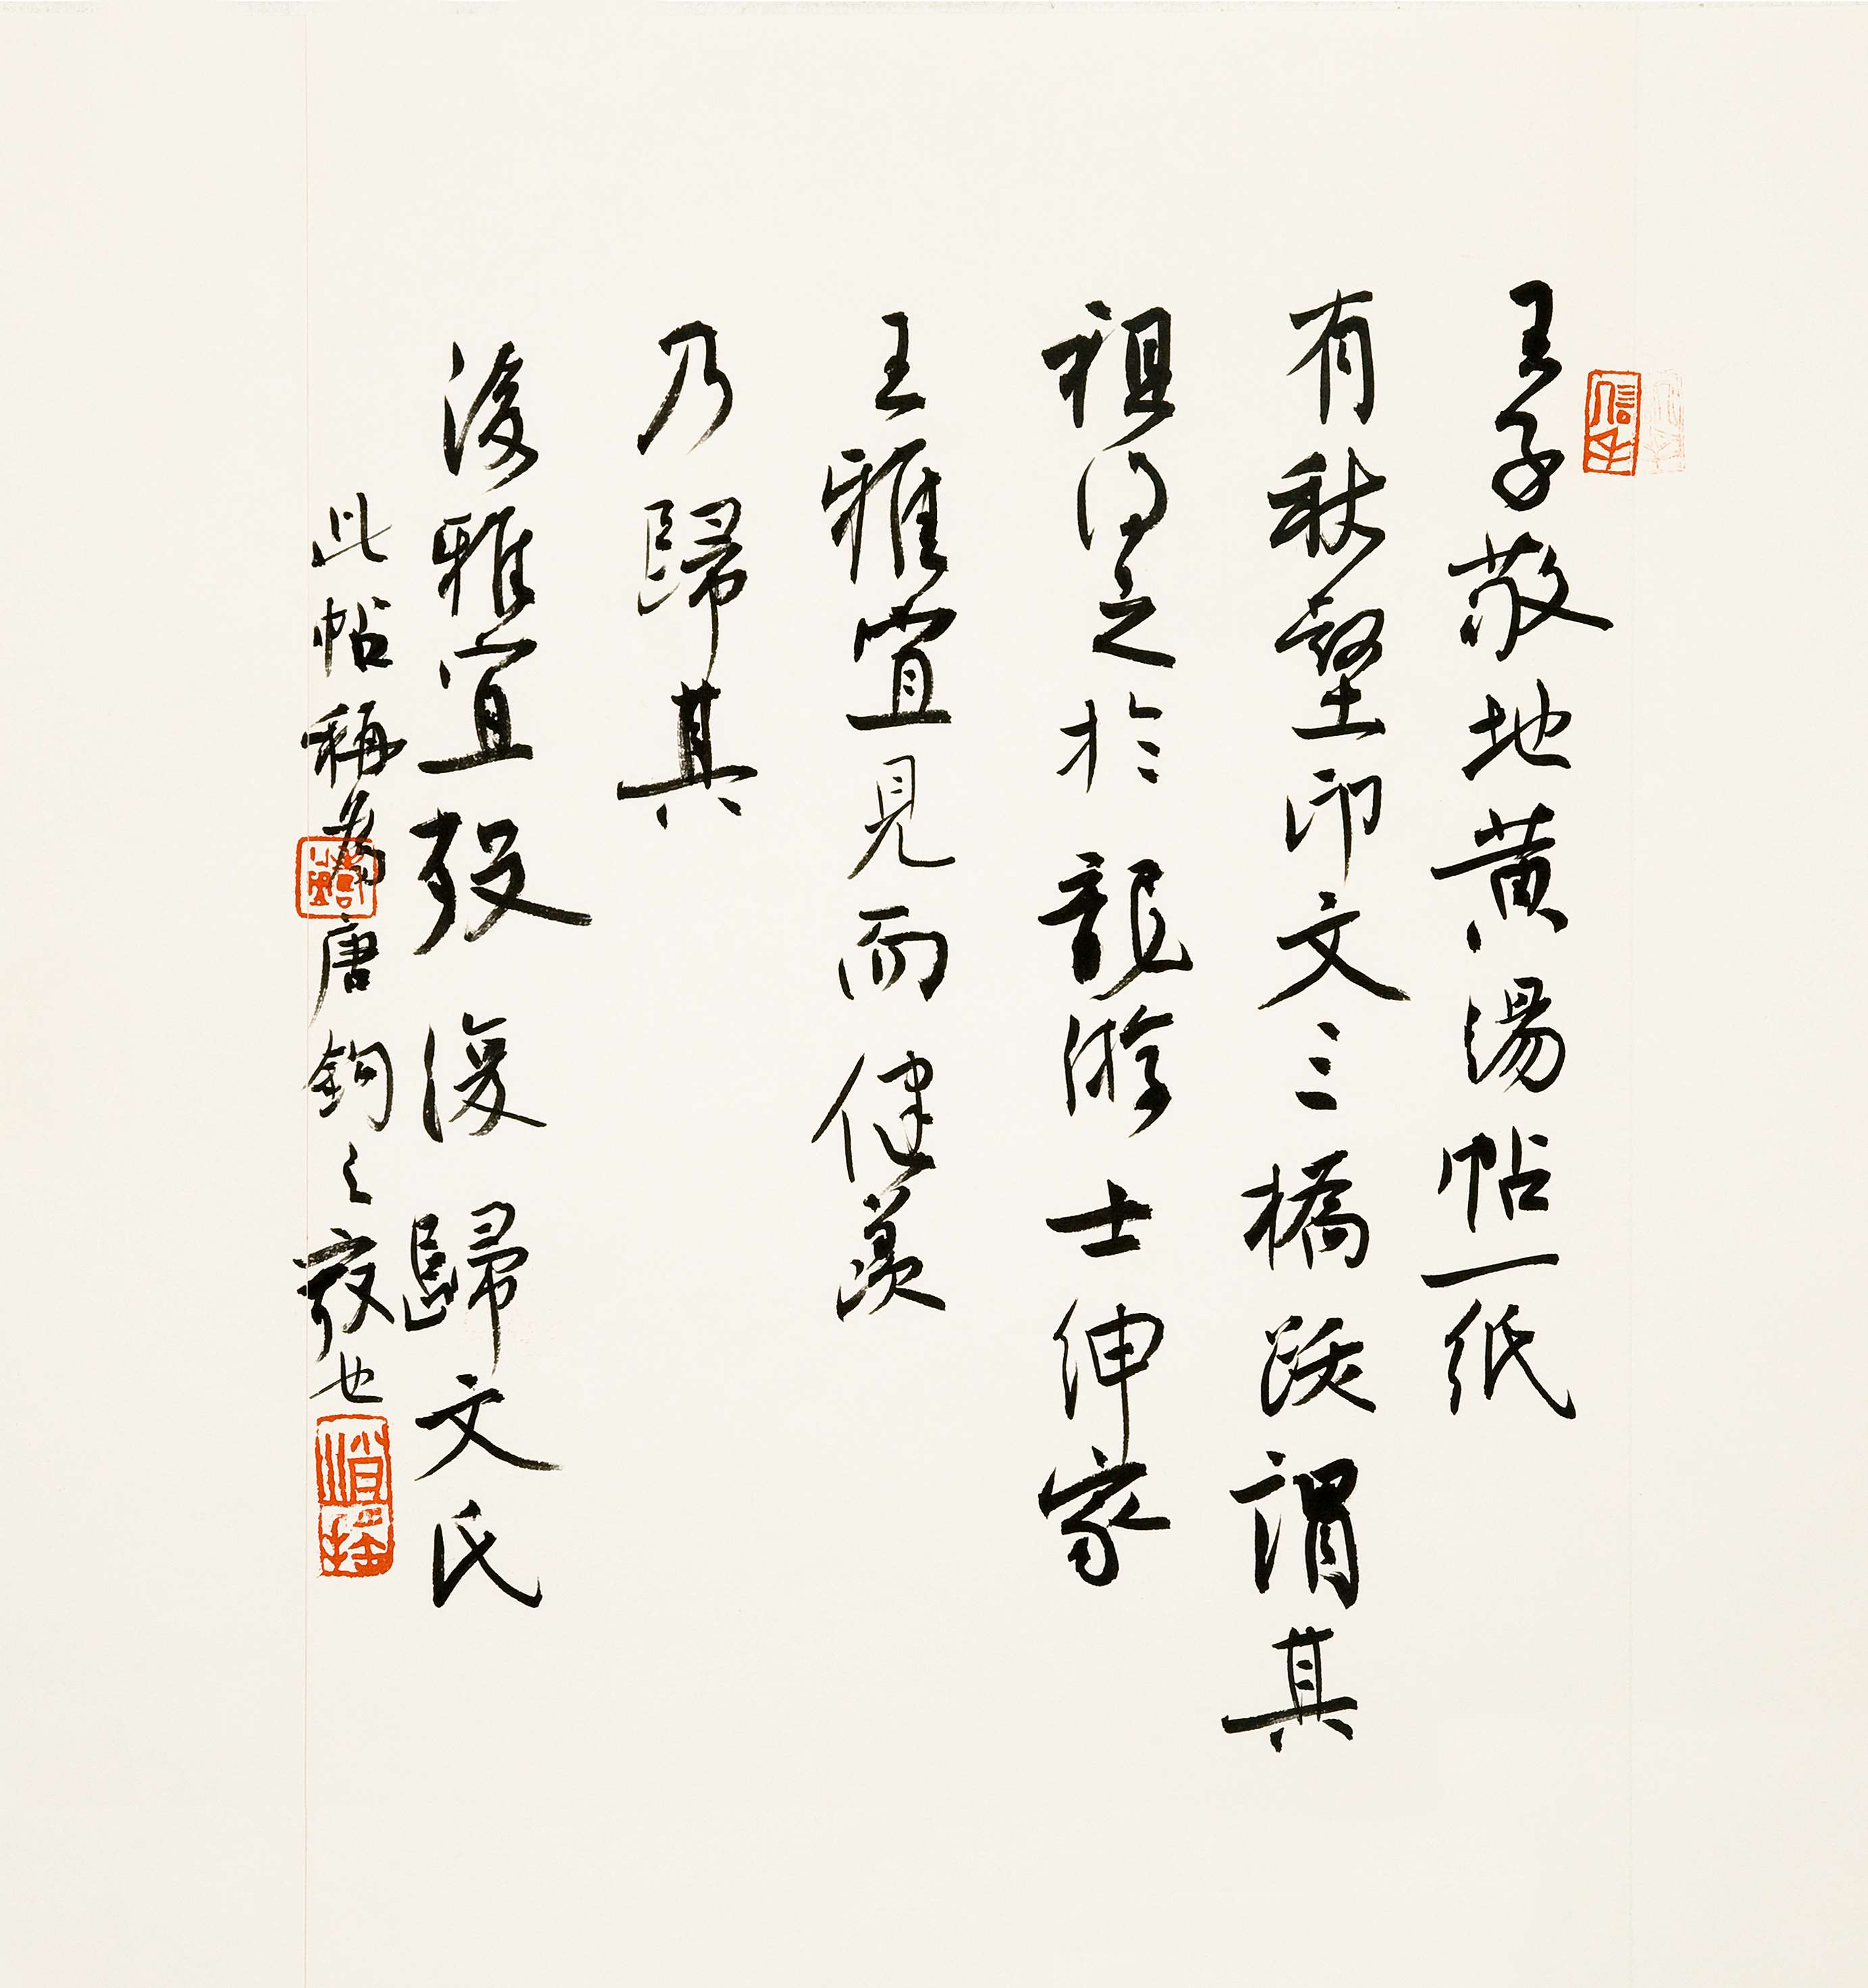 王子敬地黄湯帖一紙
有秋壑印文三橋跋謂其
祖得之於龍游士紳家
王雅宜見而健羡
乃歸其
後雅宜歿復歸文氏
此帖稱為唐鉤之最也